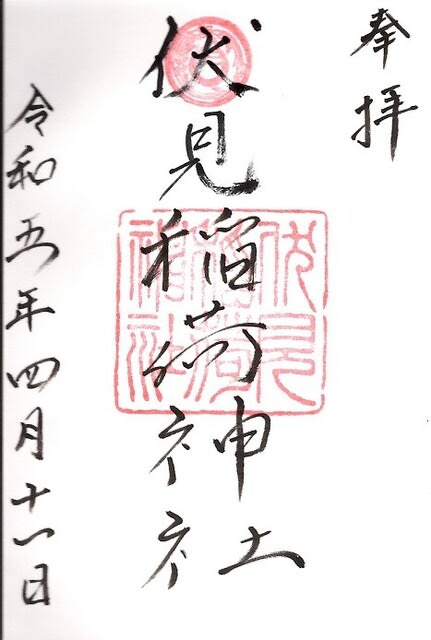 奉拝
伏見稲荷神社
伏見稲荷神社
令和五年四月十一日